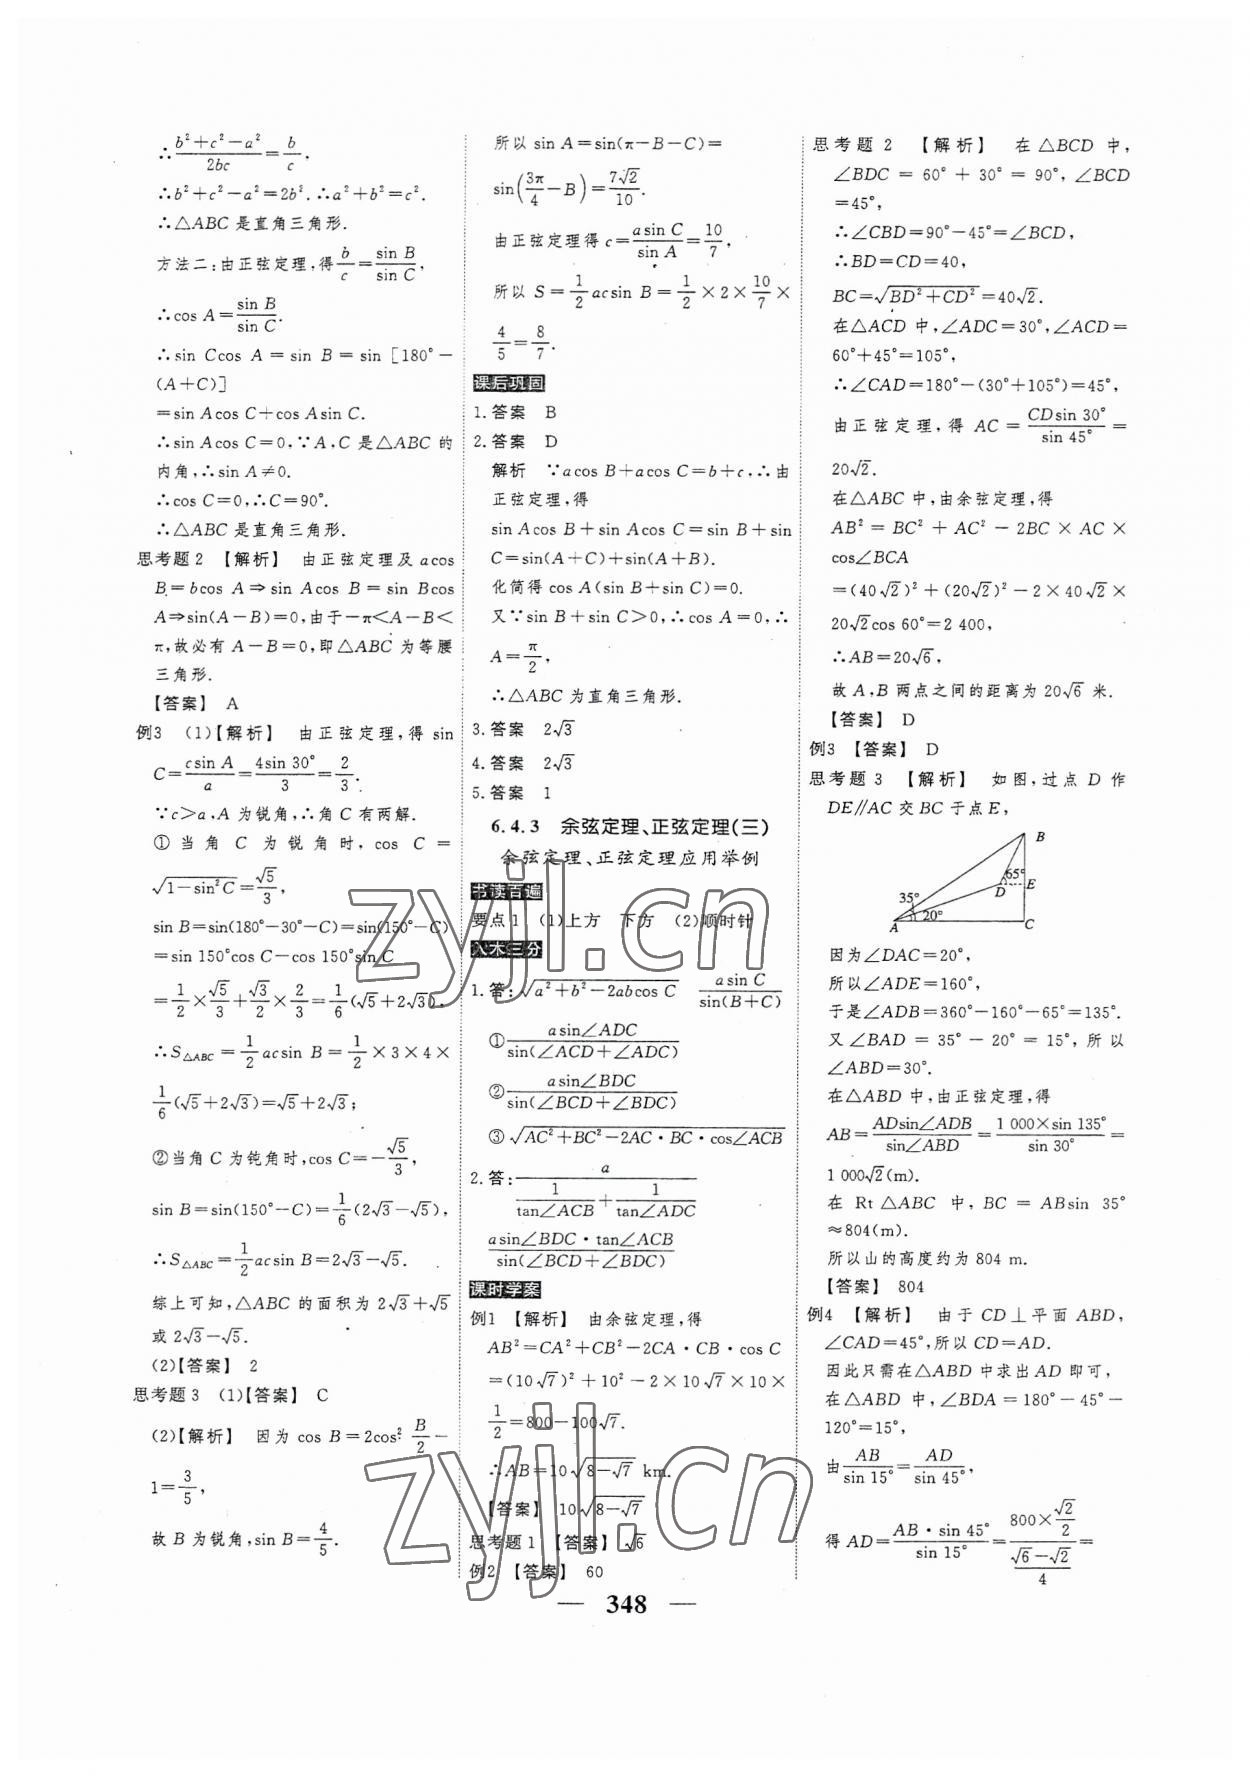 ∴(b²+c²−a²)/2bc=b/c.
∴b²+c²−a²=2b².∴a²+b²=c².
∴△ABC 是直角三角形.
方法二:由正弦定理,得b/c=sin B/sin C,
∴cos A=sin B/sin C.
∴sin Ccos A=sin B=sin [180°−
(A+C)]
=sin Acos C+cos Asin C.
∴sin Acos C=0,∵A,C 是△ABC 的
内角,∴sin A≠0.
∴cos C=0,∴C=90°.
∴△ABC 是直角三角形.
思考题2 【解析】 由正弦定理及 acos
B=bcos A⇒sin Acos B=sin Bcos
A⇒sin(A−B)=0,由于−π<A−B<
π,故必有 A−B=0,即△ABC 为等腰
三角形.
【答案】 A
例3 (1)【解析】 由正弦定理,得 sin
C=csin A/a=4sin 30°/3=2/3.
∵c>a,A 为锐角,∴角 C 有两解.
① 当角 C 为锐角时,cos C=
√(1−sin²C)=√5/3,
sin B=sin(180°−30°−C)=sin(150°−C)
=sin 150°cos C−cos 150°sin C
=1/2×√5/3+√3/2×2/3=1/6(√5+2√3).
∴S△ABC=1/2acsin B=1/2×3×4×
1/6(√5+2√3)=√5+2√3;
②当角 C 为钝角时,cos C=−√5/3,
sin B=sin(150°−C)=1/6(2√3−√5),
∴S△ABC=1/2acsin B=2√3−√5.
综上可知,△ABC 的面积为 2√3+√5
或 2√3−√5.
(2)【答案】 2
思考题3 (1)【答案】 C
(2)【解析】 因为 cos B=2cos² B/2−
1=3/5,
故 B 为锐角,sin B=4/5.
所以 sin A=sin(π−B−C)=
sin(3π/4−B)=7√2/10.
由正弦定理得 c=asin C/sin A=10/7,
所以 S=1/2acsin B=1/2×2×10/7×
4/5=8/7.
课后巩固
1.答案 B
2.答案 D
解析 ∵acos B+acos C=b+c,∴由
正弦定理,得
sin Acos B+sin Acos C=sin B+sin
C=sin(A+C)+sin(A+B).
化简得 cos A(sin B+sin C)=0.
又∵sin B+sin C>0,∴cos A=0,∴
A=π/2,
∴△ABC 为直角三角形.
3.答案 2√3
4.答案 2√3
5.答案 1
6.4.3 余弦定理、正弦定理(三)
余弦定理、正弦定理应用举例
书读百遍
要点1 (1)上方 下方 (2)顺时针
入木三分
1.答:√(a²+b²−2abcos C) asin C/sin(B+C)
①asin∠ADC/sin(∠ACD+∠ADC)
②asin∠BDC/sin(∠BCD+∠BDC)
③√(AC²+BC²−2AC·BC·cos∠ACB)
2.答:a/(1/tan∠ACB+1/tan∠ADC)
asin∠BDC·tan∠ACB/sin(∠BCD+∠BDC)
课时学案
例1 【解析】 由余弦定理,得
AB²=CA²+CB²−2CA·CB·cos C
=(10√7)²+10²−2×10√7×10×
1/2=800−100√7.
∴AB=10√(8−√7) km.
【答案】 10√(8−√7)
思考题1 【答案】 √6
例2 【答案】 60
思考题2 【解析】 在△BCD 中,
∠BDC=60°+30°=90°,∠BCD
=45°,
∴∠CBD=90°−45°=∠BCD,
∴BD=CD=40,
BC=√(BD²+CD²)=40√2.
在△ACD 中,∠ADC=30°,∠ACD=
60°+45°=105°,
∴∠CAD=180°−(30°+105°)=45°,
由正弦定理,得 AC=CDsin 30°/sin 45°=
20√2.
在△ABC 中,由余弦定理,得
AB²=BC²+AC²−2BC×AC×
cos∠BCA
=(40√2)²+(20√2)²−2×40√2×
20√2cos 60°=2 400,
∴AB=20√6,
故 A,B 两点之间的距离为 20√6 米.
【答案】 D
例3 【答案】 D
思考题3 【解析】 如图,过点 D 作
DE∥AC 交 BC 于点 E,
B
65°
E
D
35°
20°
A
C
因为∠DAC=20°,
所以∠ADE=160°,
于是∠ADB=360°−160°−65°=135°.
又∠BAD=35°−20°=15°,所以
∠ABD=30°.
在△ABD 中,由正弦定理,得
AB=ADsin∠ADB/sin∠ABD=1 000×sin 135°/sin 30°=
1 000√2(m).
在 Rt△ABC 中,BC=ABsin 35°
≈804(m).
所以山的高度约为 804 m.
【答案】 804
例4 【解析】 由于 CD⊥平面 ABD,
∠CAD=45°,所以 CD=AD.
因此只需在△ABD 中求出 AD 即可,
在△ABD 中,∠BDA=180°−45°−
120°=15°,
由AB/sin 15°=AD/sin 45°,
得 AD=AB·sin 45°/sin 15°=(800×√2/2)/((√6−√2)/4)=
348
zyjl.cn
zyjl.cn